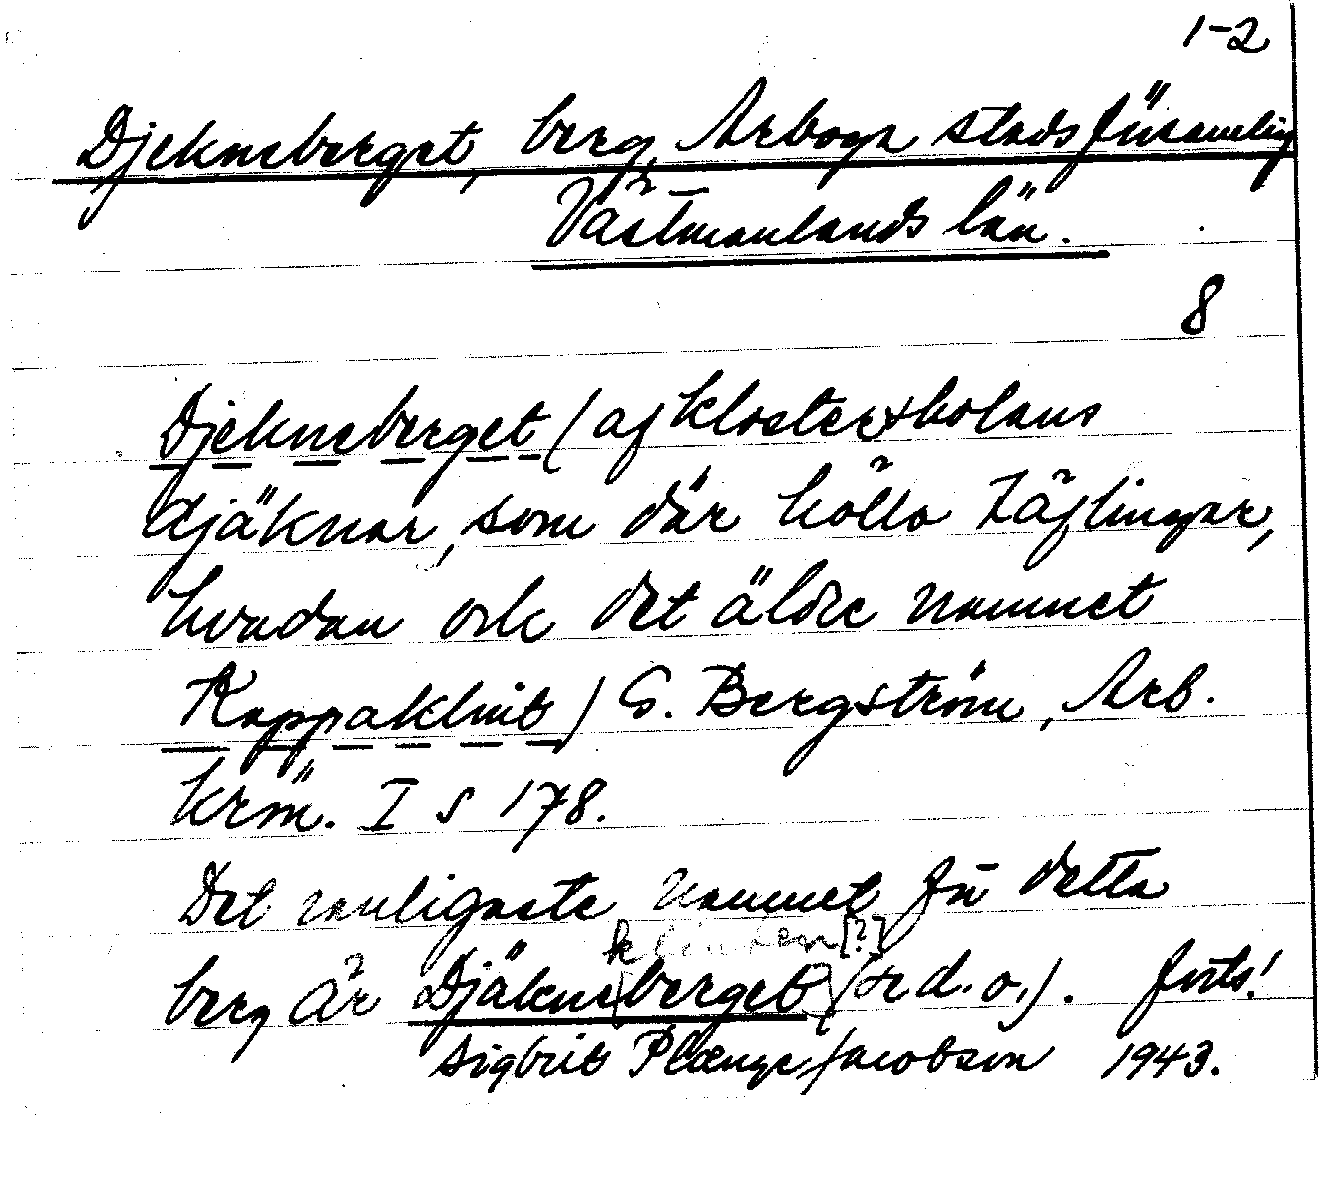 1-2
Djekneberget, berg, Arboga stadsförsamling
Västmanlands län.
8
Djekneberget (af klosterskolans
djäknar, som där höllo täflingar,
hvadan ock det äldre namnet
Kappaklint) G. Bergström, Arb.
krön. I s 178.
Det vanligaste namnet för detta
klinten [?]
berg är Djäkneberget (se d. o.). forts!
Sigbrit Plænge Jacobson 1943.